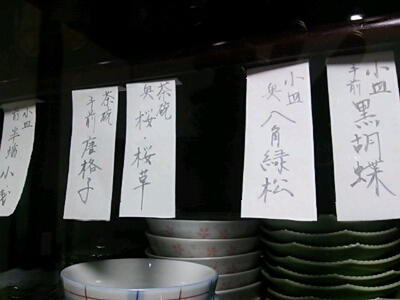 小皿
手前 黒胡蝶
小皿
奥 八角緑松
茶碗
奥 桜・桜草
茶碗
手前 唐格子
小皿